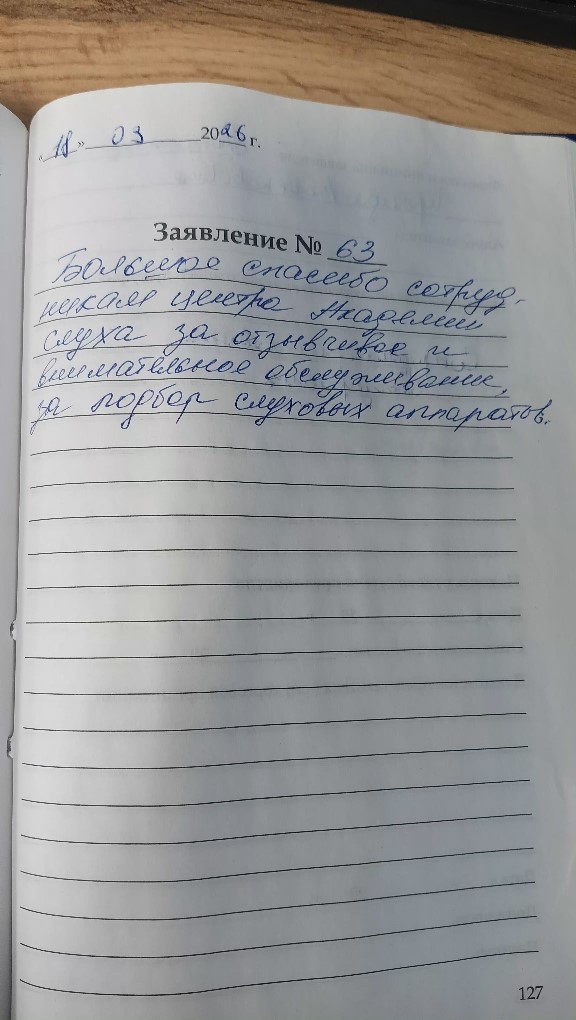 «18» 03 2026 г.
Заявление № 63
Большое спасибо сотруд-
никам центра Академии
слуха за отзывчивое и
внимательное обслуживание,
за подбор слуховых аппаратов.
127